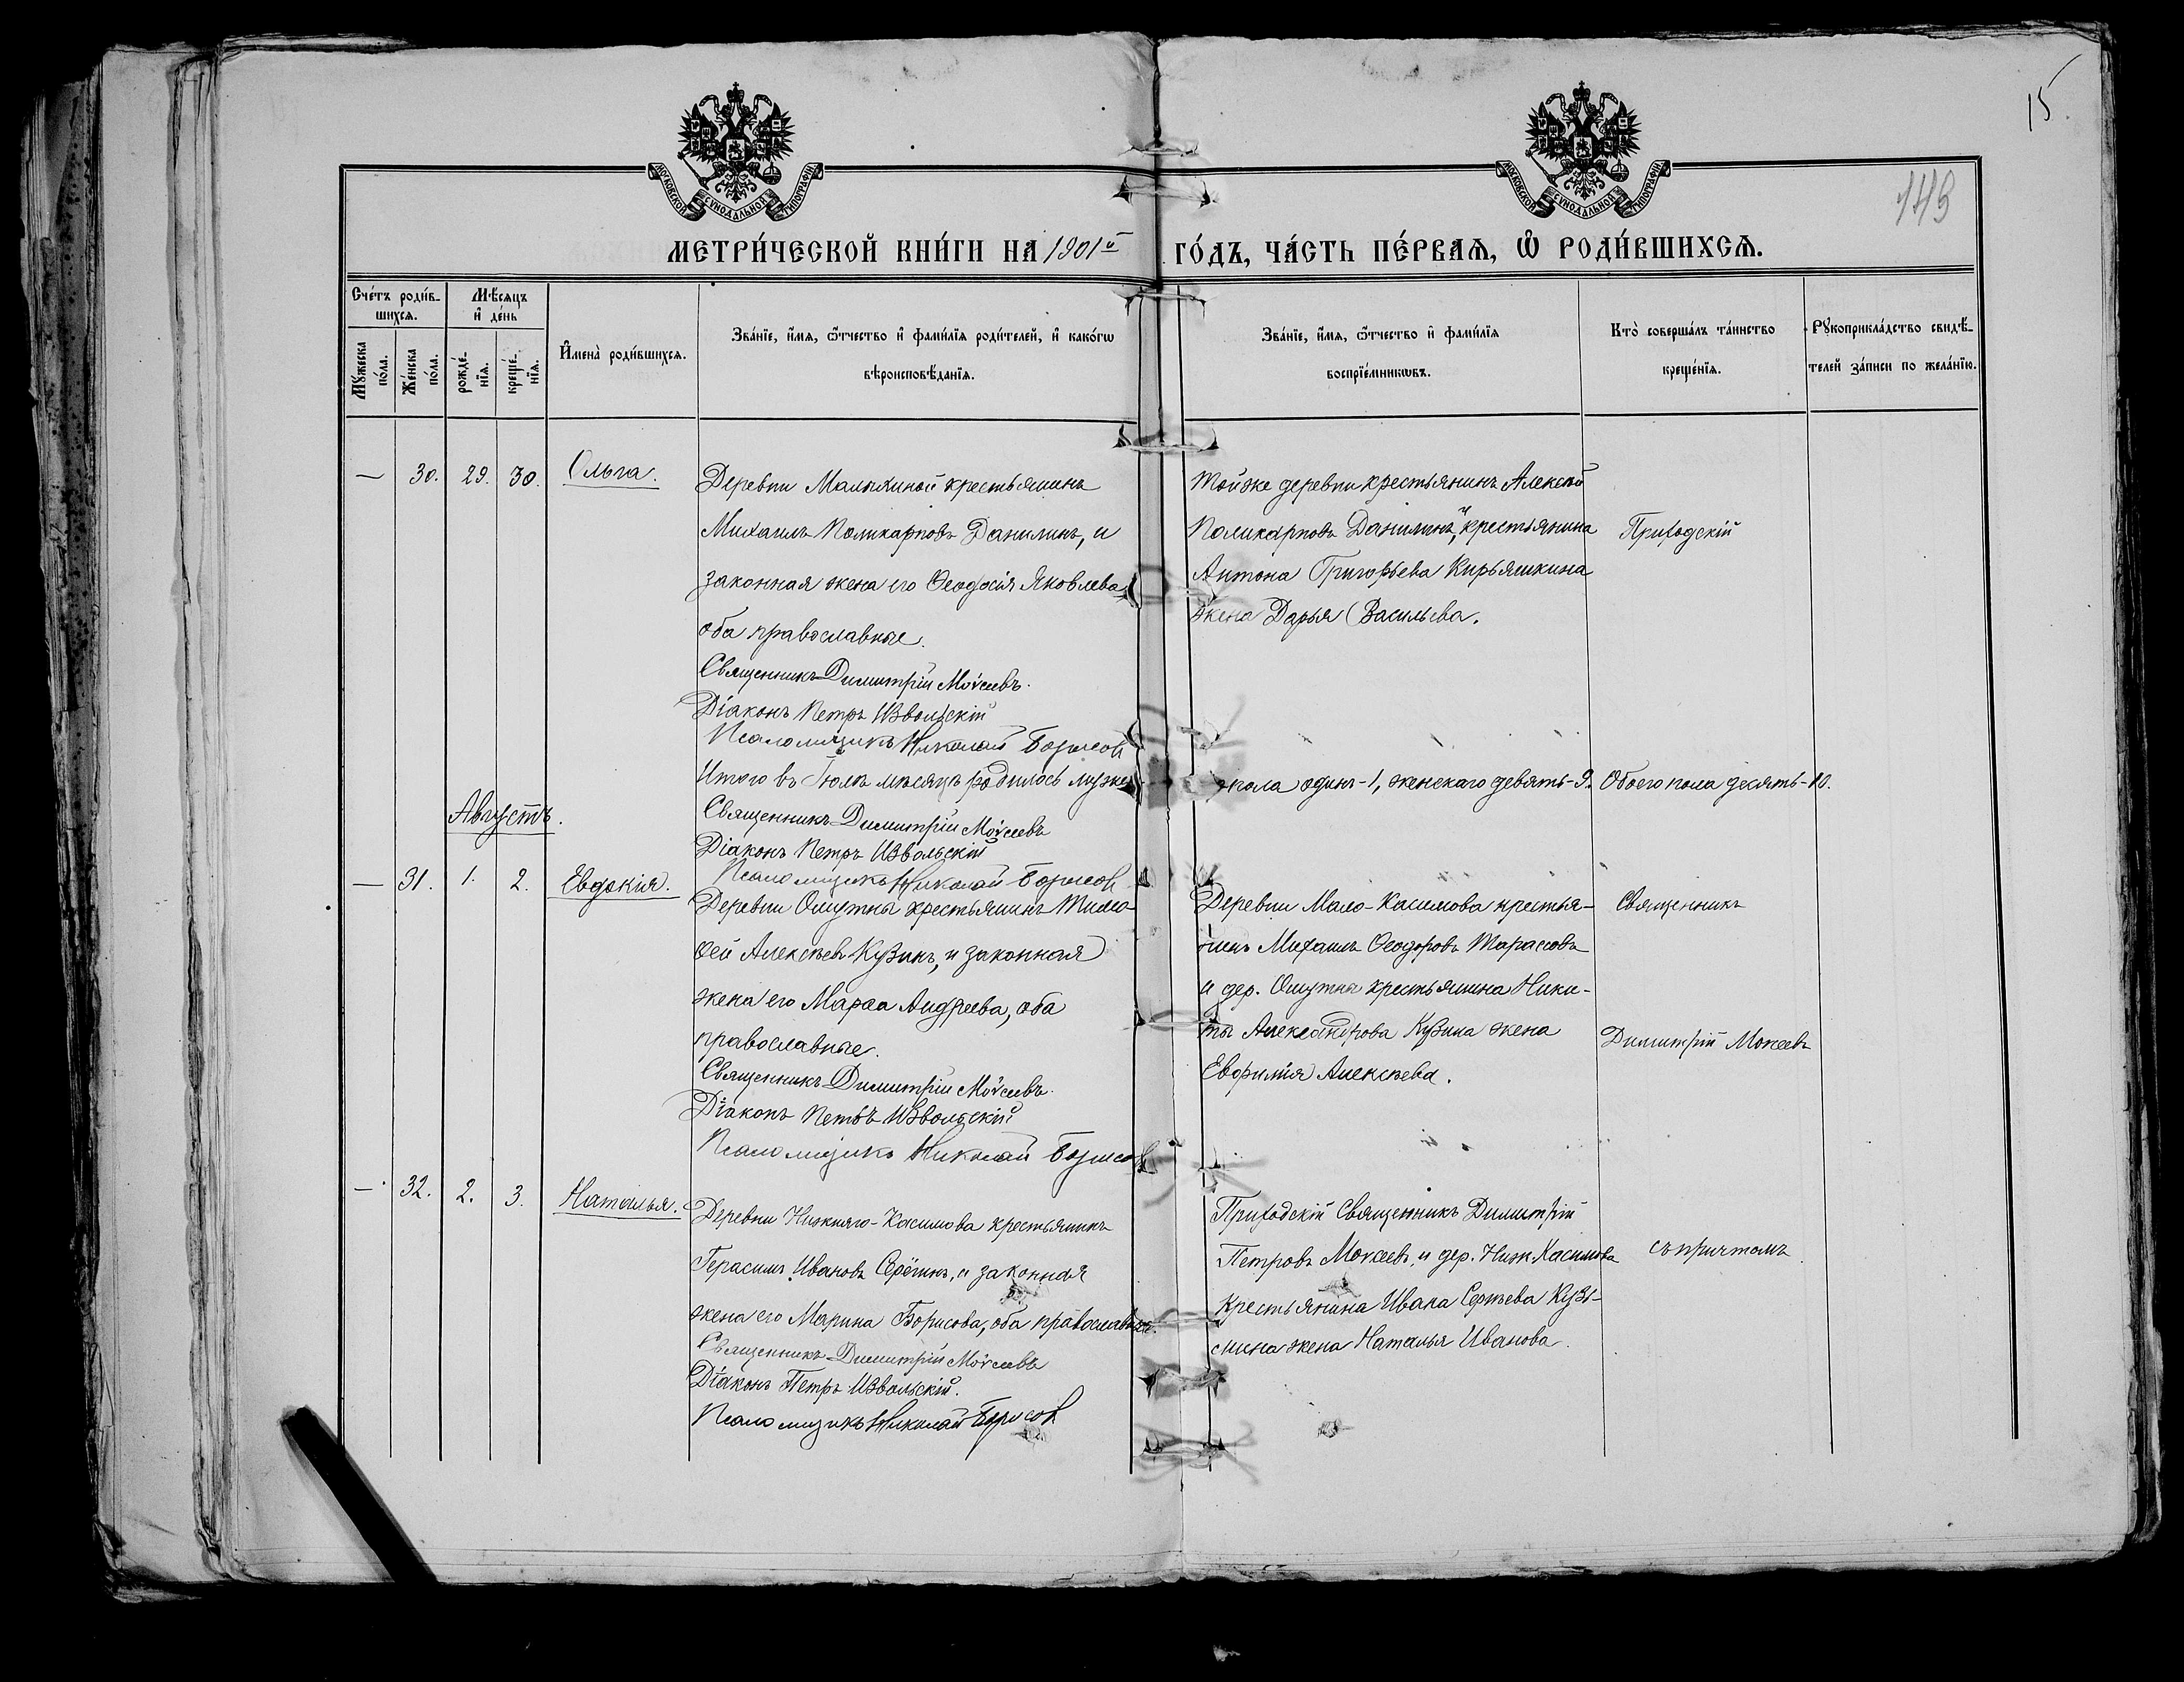 15
143
МОСКОВСКОЙ СѴНОДАЛЬНОЙ ТИПОГРАФІИ
МОСКОВСКОЙ СѴНОДАЛЬНОЙ ТИПОГРАФІИ
МЕТРИ́ЧЕСКОЙ КНИ́ГИ НА 1901й ГО́ДЪ, ЧА́СТЬ ПЕ́РВАѦ, Ѡ҆ РОДИ́ВШИХСѦ.
Сче́тъ роди́в-
шихсѧ.
Мꙋ́жеска по́ла.
Же́нска по́ла.
Мѣ́сѧцъ
и҆ де́нь
рожде́-нїѧ.
креще́-нїѧ.
И҆мена̀ роди́вшихсѧ.
Зва́нїе, и҆́мѧ, ѻ҆́тчество и҆ фами́лїѧ роди́телей, и҆ како́гѡ
вѣроисповѣ́данїѧ.
Зва́нїе, и҆́мѧ, ѻ҆́тчество и҆ фами́лїѧ
воспрїе́мникѡвъ.
Кто̀ соверша́лъ та́инство
креще́нїѧ.
Рꙋкоприкла́дство свидѣ́-
телей за́писи по жела́нїю.
— 30. 29. 30. Ольга.
Деревни Малыхиной крестьянинъ
Михаилъ Поликарповъ Данилинъ, и
законная жена его Ѳеодосія Яковлева
оба православные.
Священникъ Димитрій Моѵсеевъ.
Діаконъ Петръ Извольскій
Псаломщикъ Николай Борисов
Тойже деревни крестьянинъ Алексѣй
Поликарповъ Данилинъ, и крестьянина
Антона Григорьева Кирьянкина
жена Дарья Васильева.
Приходскій
Итого въ Іюлѣ мѣсяцѣ родилось мужс. пола одинъ-1, женскаго девять-9. Обоего пола десять-10.
Священникъ Димитрій Моѵсеевъ
Діаконъ Петръ Извольскій
Псаломщикъ Николай Борисов
Августъ.
— 31. 1. 2. Евдокія.
Деревни Омутна крестьянинъ Тимо-
ѳей Алексѣевъ Кузинъ, и законная
жена его Марѳа Андреева, оба
православные.
Священникъ Димитрій Моѵсеевъ.
Діаконъ Петръ Извольскій
Псаломщикъ Николай Борисов
Деревни Мало-Касимова крестья-
нинъ Михаилъ Ѳеодоровъ Тарасовъ
и дер. Омутна крестьянина Ники-
ты Александрова Кузина жена
Евфимія Алексѣева.
Священникъ
Димитрій Моѵсеевъ
— 32. 2. 3. Наталья.
Деревни Нижняго-Касимова крестьянинъ
Герасимъ Ивановъ Серёгинъ, и законная
жена его Марина Борисова, оба православные.
Священникъ Димитрій Моѵсеевъ
Діаконъ Петръ Извольскій.
Псаломщикъ Николай Борисов
Приходскій Священникъ Димитрій
Петровъ Моѵсеевъ, и дер. Ниж. Касимова
крестьянина Ивана Сергѣева Кузь-
мина жена Наталья Иванова.
съ причтомъ